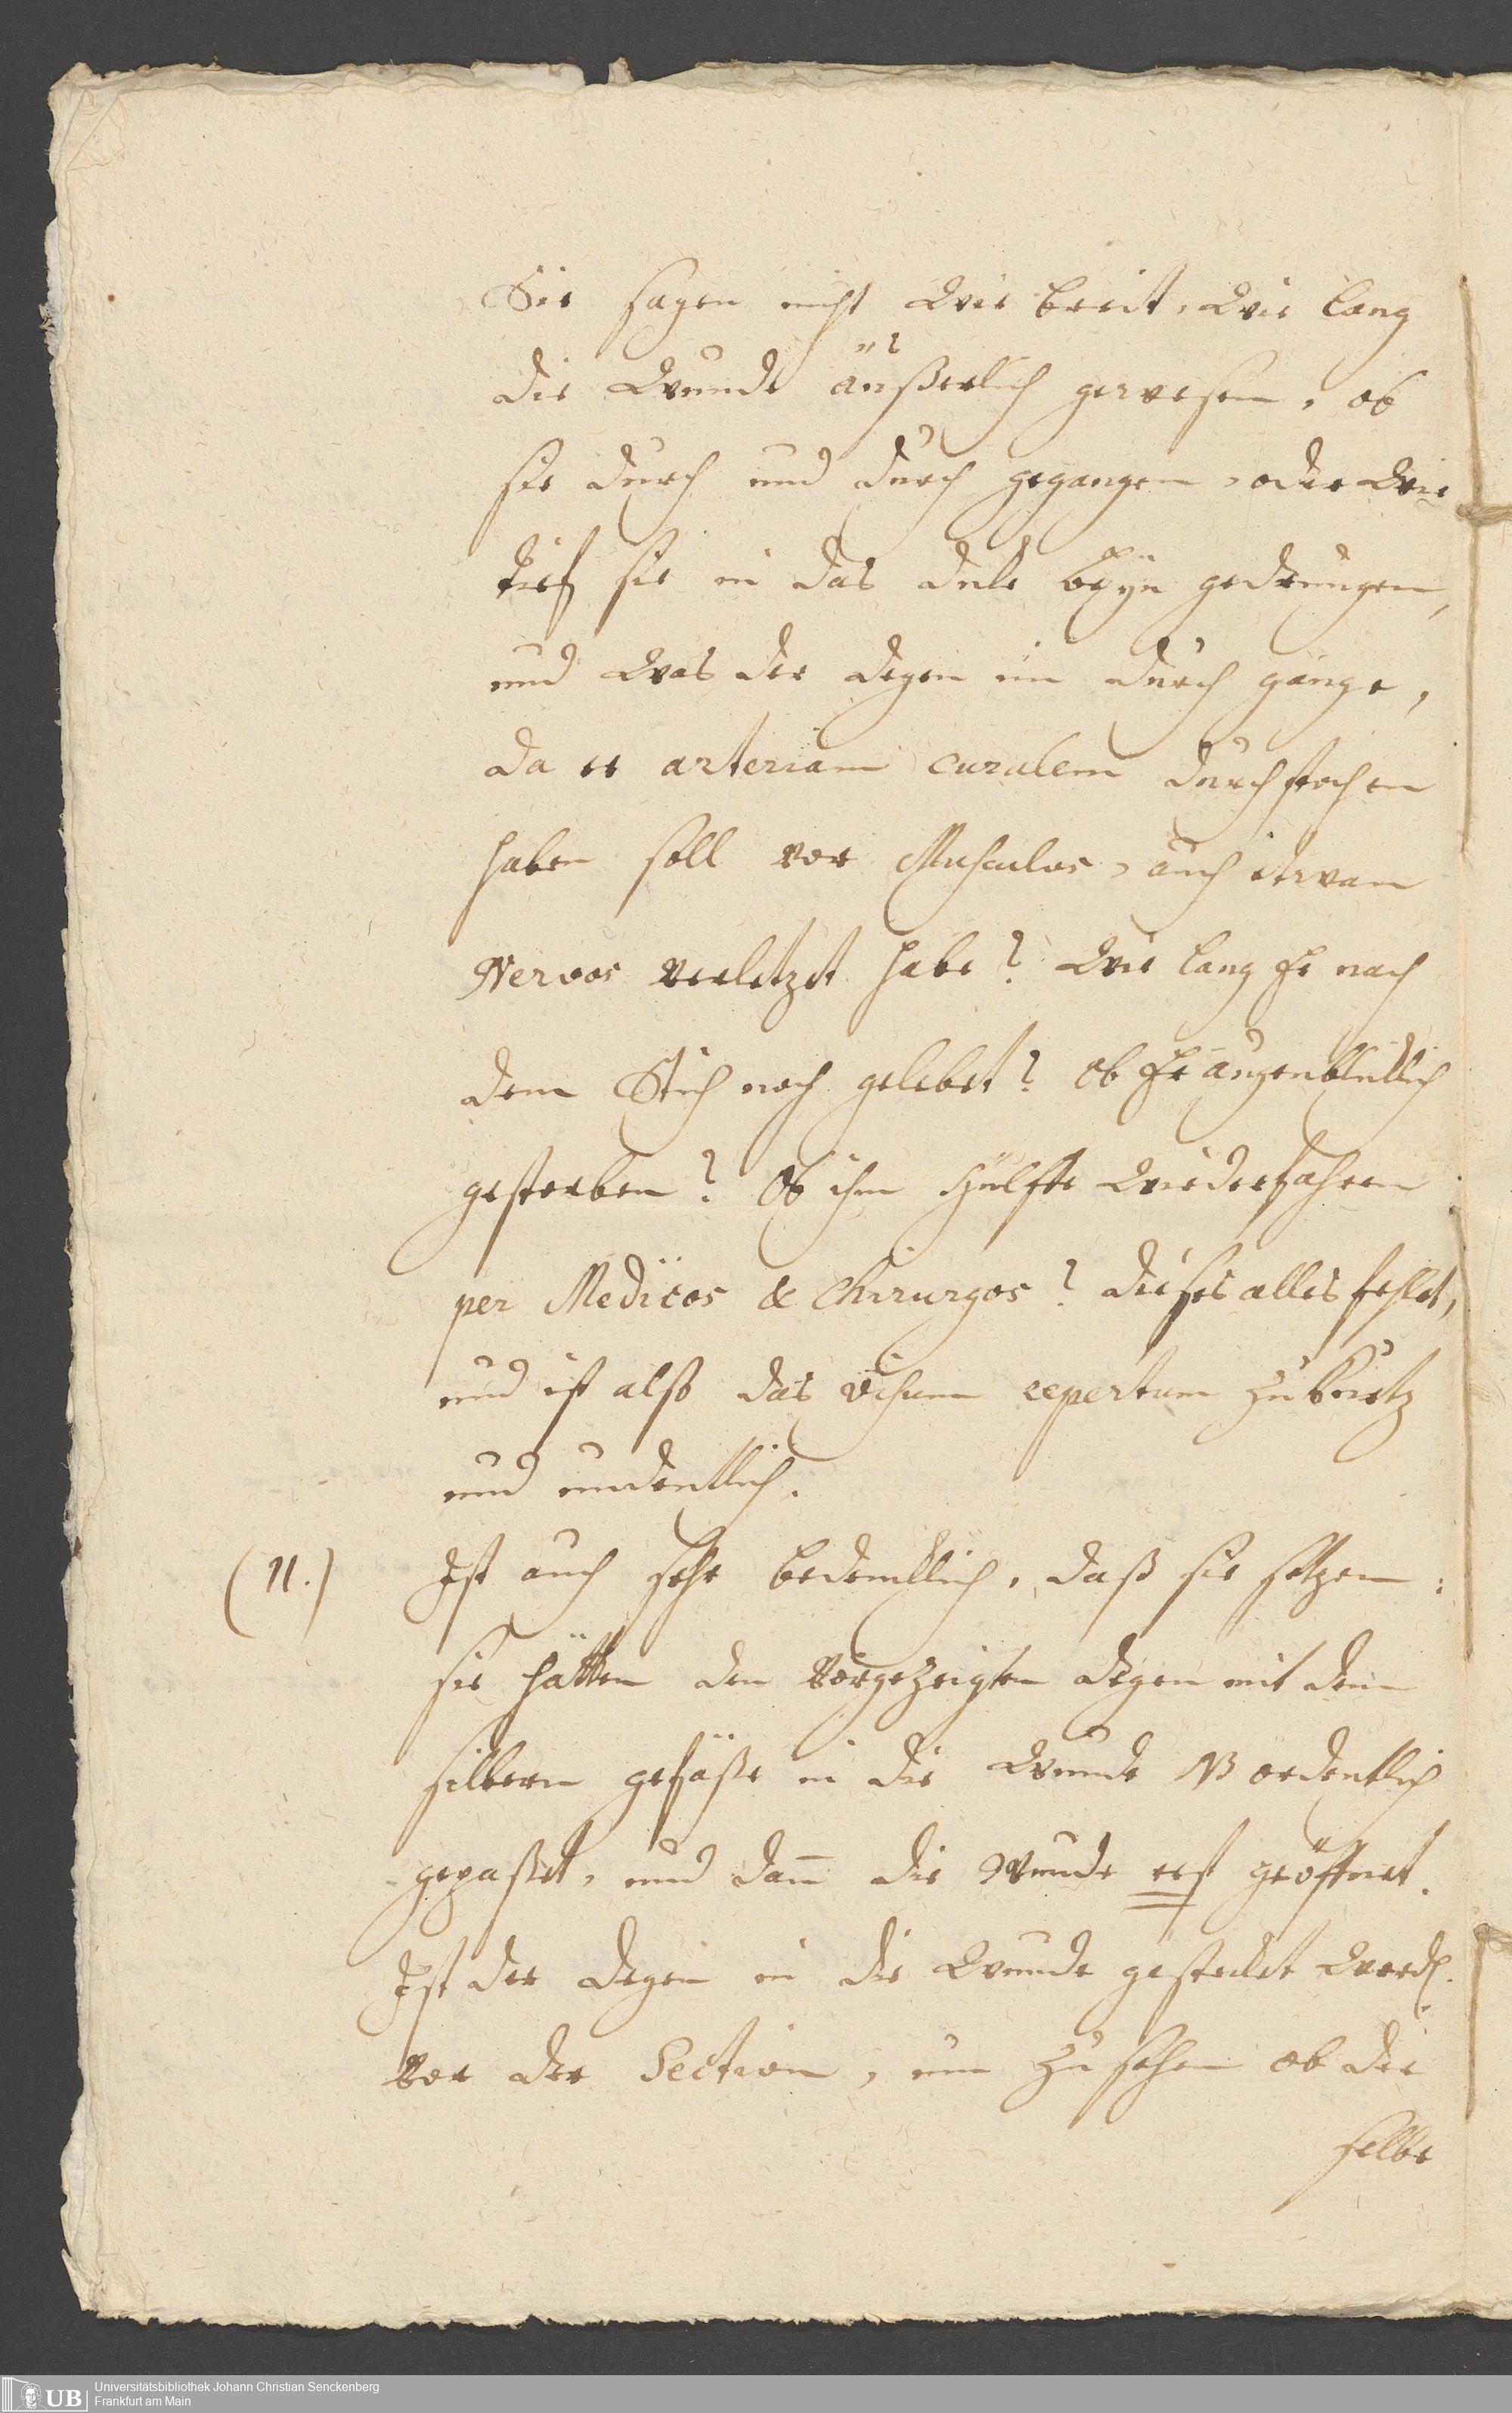 Sie sagen nicht wie breit, wie lang
die Wunde äußerlich gewesen, ob
sie durch und durch gegangen, oder wie
tief sie in das dicke beyn gedrungen,
und was der degen im durch gange,
da er arteriam curalem durchstochen
haben soll vor Musculos, auch etwan
Nervos verletzet habe? Wie lang Er nach
dem Stich noch gelebet? Ob Er augenblicklich
gestorben? Ob ihm Hülffe wiederfahren
per Medicos & Chirurgos? dieses alles fehlet,
und ist also das visum repertum zu kurtz
und undeutlich.
(11.) Ist auch sehr bedencklich, daß sie setzen:
sie hätten den vorgezeigten degen mit dem
silbern gefäße in die Wunde NB ordentlich
gepasset, und dann die Wunde erst geöffnet.
Ist der degen in die Wunde gestecket word.
vor der Section, um zu sehen ob die
selbe
Universitätsbibliothek Johann Christian Senckenberg
Frankfurt am Main
UB